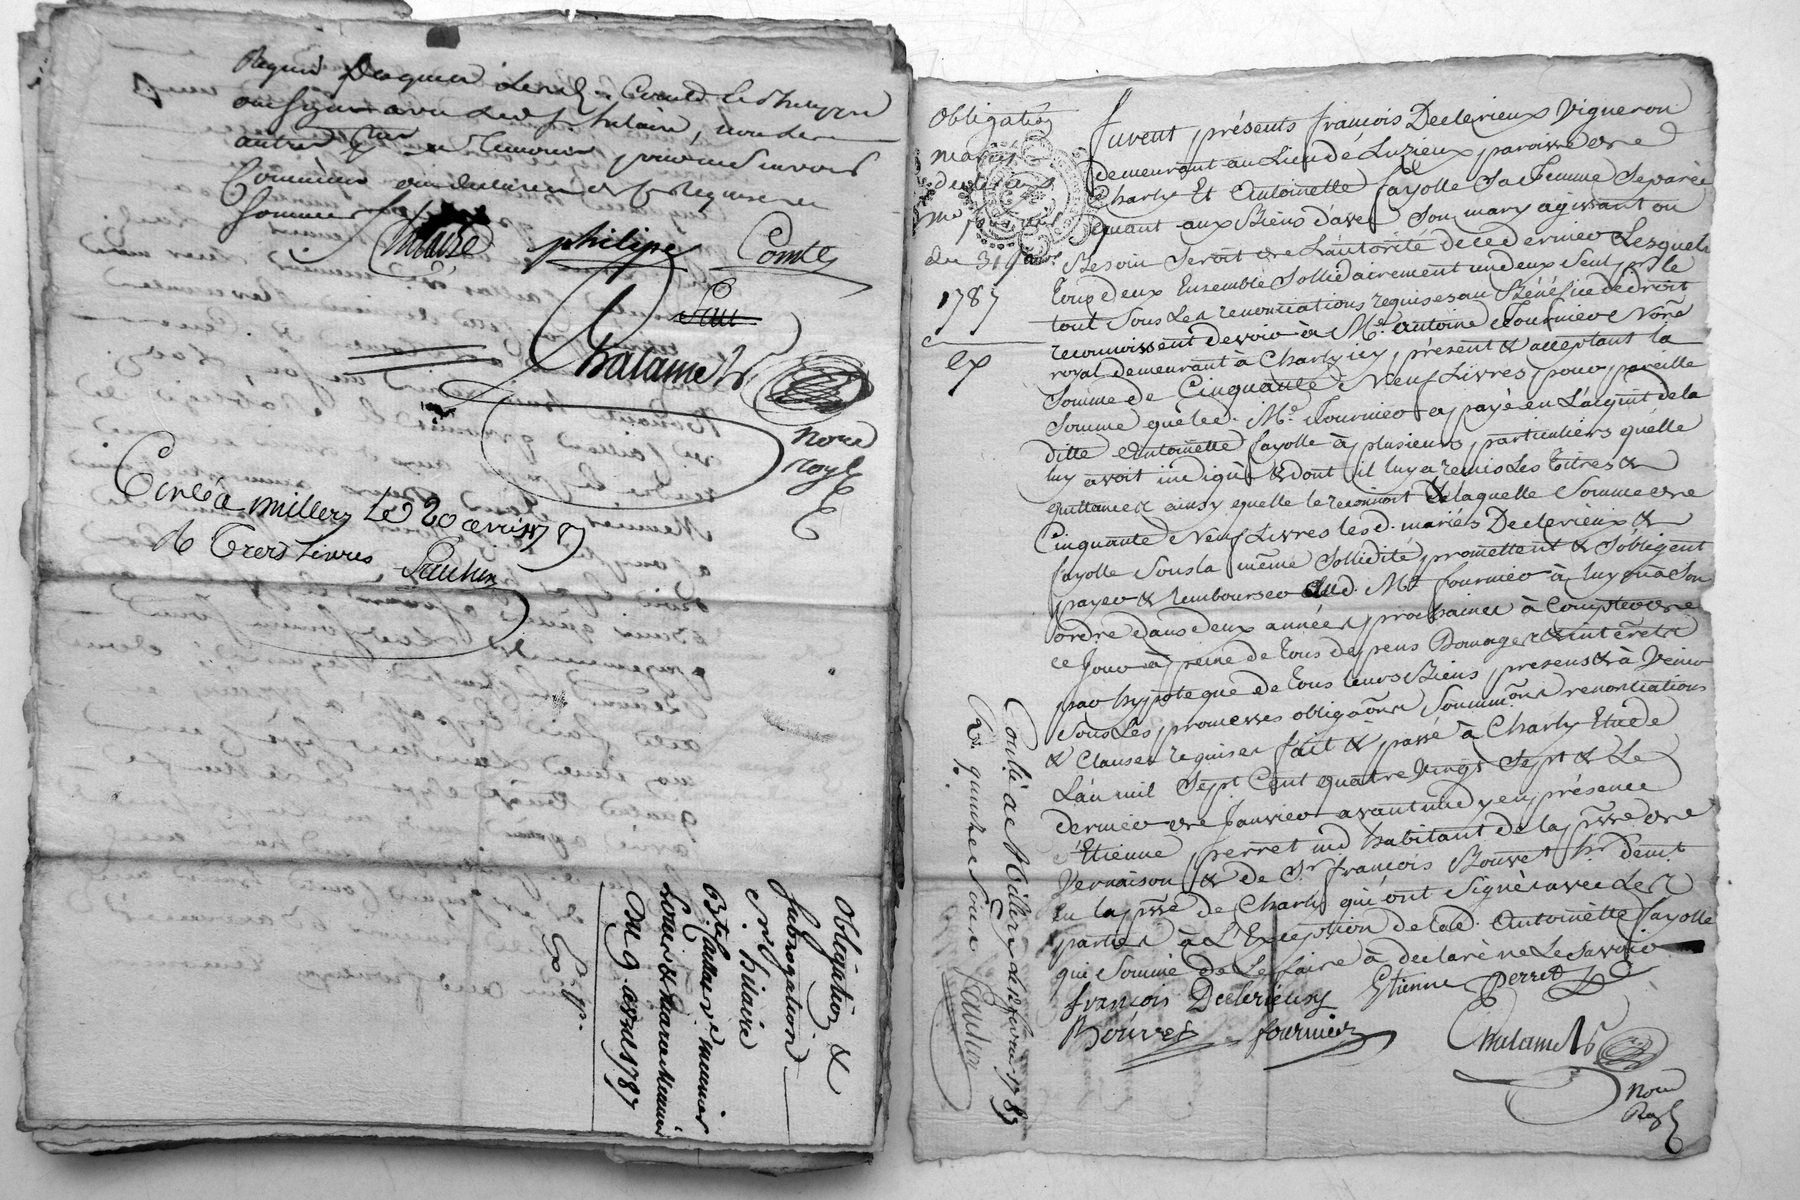 Requis
avec led. Sr. hilaire, non les
autres
Sommés
hilaire philipe Comte
Chalamel
Nore
royl
Controlé a millery le 20 avril 1787
R. trois livres
Paulin
Obligation &
Subrogation
Sr. hilaire
Bte. Caillas ve. meunier
Louis & Marc Meunier
Du 9. avril 1787
Ex.
Obligation
du 31 janv.
1787
ex
furent présents françois Declerieux Vigneron
demeurant au Lieu de Luzieux paroisse de
Charly Et Antoinette fayolle Sa femme Separée
quant aux Biens d'avec Son mary agissant ou
Besoin Seroit de L'autorité de ce dernier Lesquels
tous deux Ensemble Sollidairement un deux Seul pr. le
tout Sous Les renonciations requises au Bénéfice de droit
reconnoissent devoir à Me. antoine fournier Nore.
royal demeurant à Charly icy présent & acceptant la
Somme de Cinquante Neuf Livres pour pareille
Somme que led. Me. fournier a payé en L'acquit de la
ditte Antoinette fayolle à plusieurs particuliers qu'elle
luy avoit indiqué & dont il luy a remis Les titres &
quittances ainsy quelle le reconnoit & laquelle Somme de
Cinquante Neuf Livres lesd. mariés Declerieux &
fayolle Sous la même Sollidité promettent & S'obligent
payer & rembourser aud. Me. fournier à luy ou à Son
ordre dans deux années prochaines à Compter de
ce Jour à peine de tous depens Domages & intérêts
par hypoteque de tous leurs Biens présens & à Venir
Sous Les promesses obligaons. Soummons. renonciations
& Clauses requises fait & passé à Charly Etude
L'an mil Sept Cent quatre Vingt Sept & Le
dernier de Janvier avant midy en présence
d'Etienne perret md habitant de la psse. de
Vernaison & de Sr françois Bouvet hr. demt.
En la psse de Charly qui ont Signés avec Les
parties à L'Exception de lad. Antoinette fayolle
qui Sommé de Le faire à declaré ne Le Savoir
françois Declerieux Etienne Perret
Bouvet fournier
Chalamel
Nore
Royl
Conlé a Millery le fevrier 1787
R. quinze Sous Paulin